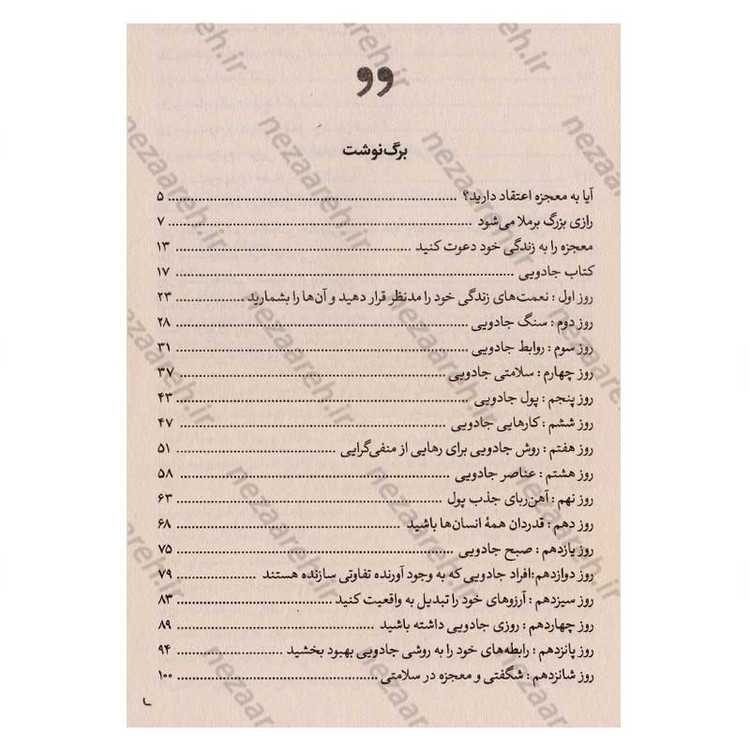 برگ‌نوشت
آیا به معجزه اعتقاد دارید؟ ........ ۵
رازی بزرگ برملا می‌شود ........ ۷
معجزه را به زندگی خود دعوت کنید ........ ۱۳
کتاب جادویی ........ ۱۷
روز اول : نعمت‌های زندگی خود را مدنظر قرار دهید و آن‌ها را بشمارید ........ ۲۳
روز دوم : سنگ جادویی ........ ۲۸
روز سوم : روابط جادویی ........ ۳۱
روز چهارم : سلامتی جادویی ........ ۳۷
روز پنجم : پول جادویی ........ ۴۳
روز ششم : کارهایی جادویی ........ ۴۷
روز هفتم : روش جادویی برای رهایی از منفی‌گرایی ........ ۵۱
روز هشتم : عناصر جادویی ........ ۵۸
روز نهم : آهن‌ربای جذب پول ........ ۶۳
روز دهم : قدردان همهٔ انسان‌ها باشید ........ ۶۸
روز یازدهم : صبح جادویی ........ ۷۵
روز دوازدهم:افراد جادویی که به وجود آورنده تفاوتی سازنده هستند ........ ۷۹
روز سیزدهم : آرزوهای خود را تبدیل به واقعیت کنید ........ ۸۳
روز چهاردهم : روزی جادویی داشته باشید ........ ۸۹
روز پانزدهم : رابطه‌های خود را به روشی جادویی بهبود بخشید ........ ۹۴
روز شانزدهم : شگفتی و معجزه در سلامتی ........ ۱۰۰
nezaareh.ir